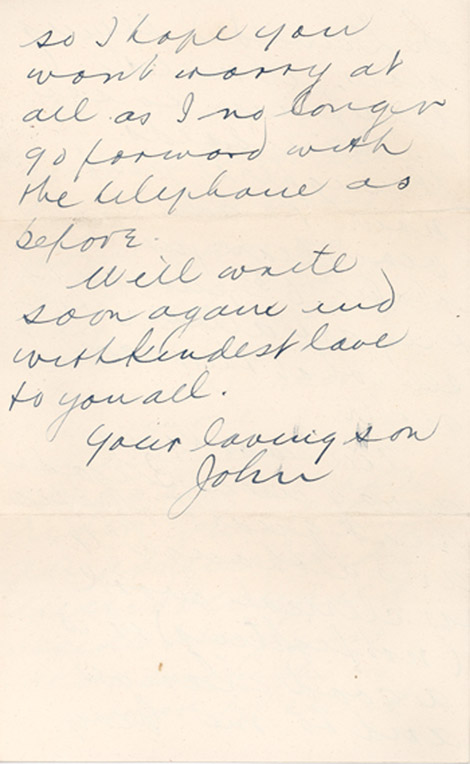 so I hope you
wont worry at
all as I no longer
go forward with
the telephone as
before.
Will write
soon again and
with kindest love
to you all.
Your loving son
John